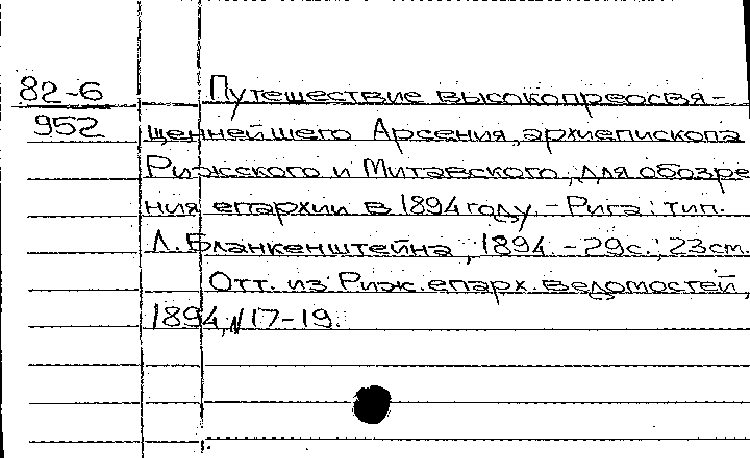 82-6 Путешествие высокопреосвя-
952 щеннейшего Арсения, архиепископа
Рижского и Митавского, для обозре
ния епархии в 1894 году. - Рига: тип.
Л. Бланкенштейна, 1894. - 29с.; 23см.
Отт. из Риж. епарх. ведомостей,
1894, N 17-19.